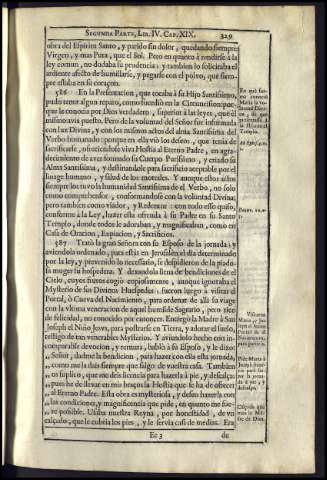 SEGUNDA PARTE, LIB. IV. CAP. XIX. 329
obra del Espiritu Santo, y parido sin dolor, quedando siempre
Virgen, y mas Pura, que el Sol. Pero en quanto à rendirse à la
ley comun, no dudaba su prudencia; y tambien lo solicitaba el
ardiente afecto de humillarse, y pegarse con el polvo, que siem-
pre estaba en su coraçon.
586 En la Presentacion, que tocaba à su Hijo Santissimo,
pudo tener algun reparo, como sucediò en la Circuncision; por-
que le conocia por Dios verdadero, superior à las leyes, que èl
mismo avia puesto. Pero de la voluntad del Señor fue informada
con luz Divina, y con los mismos actos del Alma Santissima del
Verbo humanado; porque en ella viò los deseos, que tenia de
sacrificarse, ofreciendose viva Hostia al Eterno Padre, en agra-
decimiento de aver formado su Cuerpo Purissimo, y criado su
Alma Santissima, y destinandole para sacrificio aceptable por el
linage humano, y salud de los mortales. Y aunque estos actos
siempre los tuvo la humanidad Santissima del Verbo, no solo
como comprehensor, conformandose con la voluntad Divina;
pero tambien como viador, y Redentor: con todo esso quiso,
conforme à la Ley, hazer esta ofrenda à su Padre en su Santo
Templo, donde todos le adoraban, y magnificaban, como en
Casa de Oracion, Expiacion, y Sacrificios.
587 Tratò la gran Señora con su Esposo de la jornada; y
aviendola ordenado, para estàr en Jerusalèn el dia determinado
por la ley, y prevenido lo necessario, se despidieron de la piado-
sa muger su hospedera. Y dexandola llena de bendiciones de el
Cielo, cuyos frutos cogiò copiosamente, aunque ignoraba el
Mysterio de sus Divinos Huespedes; fueron luego à visitar el
Portal, ò Cueva del Nacimiento, para ordenar de allí su viage
con la ultima veneracion de aquel humilde Sagrario, pero rico
de felicidad, no conocido por entonces. Entregò la Madre à San
Joseph el Niño JESVS, para postrarse en Tierra, y adorar el suelo,
testigo de tan venerables Mysterios. Y aviendolo hecho con in-
comparable devocion, y ternura, hablò à su Esposo, y le dixo:
Señor, dadme la bendicion, para hazer con ella esta jornada,
como me la dais siempre que salgo de vuestra casa. Tambien
os suplico, que me deis licencia para hazerla à pie, y descalça;
pues he de llevar en mis braços la Hostia que se ha de ofrecer
al Eterno Padre. Esta obra es mysteriosa, y deseo hazerla con
las condiciones, y magnificencia que pide, en quanto me fue-
re posible. Usaba nuestra Reyna, por honestidad, de un
calçado, que le cubria los pies, y le servia casi de medias. Era
Ee 3 de